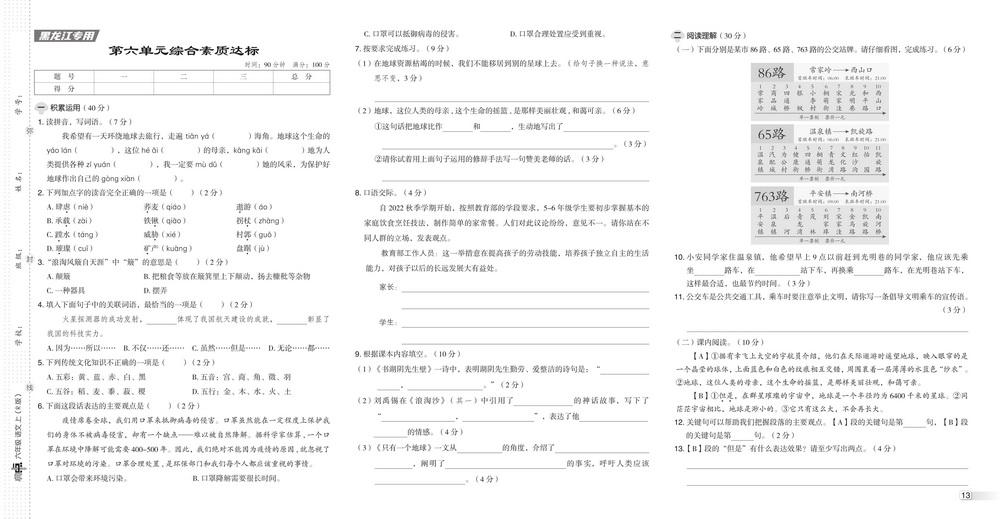 黑龙江专用
第六单元综合素质达标
时间：90分钟 满分：100分
题 号 一 二 三 总 分
得 分
一 积累运用（40分）
1. 读拼音，写词语。（7分）
我希望有一天环绕地球去旅行，走遍 tiān yá（ ）海角。地球这个生命的
yáo lán（ ），这位 hé ǎi（ ）的母亲，kāng kǎi（ ）地为人
类提供各种 zī yuán（ ），我一定要 mù dǔ（ ）她的风采，为保护好
地球作出自己的 gòng xiàn（ ）。
2. 下列加点字的读音完全正确的一项是（ ）（2分）
A. 肆虐（nüè） 荞麦（qiáo） 遨游（áo）
B. 承载（zài） 铁锹（qiāo） 拐杖（zhàng）
C. 蹚水（tāng） 威胁（xié） 村郭（guō）
D. 璀璨（cuǐ） 矿产（kuàng） 盘踞（jù）
3. “浪淘风簸自天涯”中“簸”的意思是（ ）（2分）
A. 颠簸 B. 把粮食等放在簸箕里上下颠动，扬去糠秕等杂物
C. 一种器具 D. 摆弄
4. 填入下面句子中的关联词语，最恰当的一项是（ ）（2分）
火星探测器的成功发射，体现了我国航天建设的成就，彰显了
我国的科技实力。
A. 因为……所以…… B. 不仅……还…… C. 虽然……但是…… D. 无论……都……
5. 下列传统文化知识不正确的一项是（ ）（2分）
A. 五彩：黄、蓝、赤、白、黑 B. 五音：宫、商、角、徵、羽
C. 五谷：稻、麦、黍、菽、稷 D. 五行：金、木、水、火、土
6. 下面这段话表达的主要观点是（ ）（2分）
疫情席卷全球，我们用口罩来抵御病毒的侵害。口罩虽然能在一定程度上保护我
们的身体不被病毒侵害，却有一个缺点——难以被自然降解。据科学家估算，一个口
罩在环境中降解可能需要400–500年。因此，我们绝对不能因为疫情的原因，就忽视了
口罩对环境的污染。口罩合理处置，是环保部门和我们每个人都应该重视的事情。
A. 口罩会带来环境污染。 B. 口罩降解需要很长时间。
C. 口罩可以抵御病毒的侵害。 D. 口罩合理处置应受到重视。
7. 按要求完成练习。（9分）
（1）在地球资源枯竭的时候，我们不能移居到别的星球上去。（给句子换一种说法，意
思不变，3分）
（2）地球，这位人类的母亲，这个生命的摇篮，是那样美丽壮观，和蔼可亲。（6分）
①这句话把地球比作和，生动地写出了
。（3分）
②请你试着用上面句子运用的修辞手法写一句赞美老师的话。（3分）
8. 口语交际。（4分）
自2022秋季学期开始，按照教育部的学段要求，5–6年级学生要初步掌握基本的
家庭饮食烹饪技法，制作简单的家常餐。人们对此议论纷纷，意见不一。请你站在不
同人群的立场，发表观点。
教育部工作人员：这一举措意在提高孩子的劳动技能，培养孩子独立自主的生活
能力，对孩子以后的长远发展大有益处。
家长：
学生：
9. 根据课本内容填空。（10分）
（1）《书湖阴先生壁》一诗中，表明湖阴先生勤劳、爱整洁的诗句是：“
，。”（2分）
（2）刘禹锡在《浪淘沙》（其一）中引用了的神话故事，写下了
“，”，表达了他
的情感。（4分）
（3）《只有一个地球》一文从的角度，介绍了
，阐明了的事实，呼吁人类应该
。（4分）
二 阅读理解（30分）
（一）下面分别是某市86路、65路、763路的公交站牌。请仔细看图，完成练习。（6分）
86路 常家岭——→西山口
首班车时间：06:00 末班车时间：21:00
1 2 3 4 5 6 7 8 9 10
单一票制 票价一元
65路 温泉镇——→凯旋路
首班车时间：06:00 末班车时间：21:00
1 2 3 4 5 6 7 8 9 10 11
单一票制 票价一元
763路 平安镇——→南河桥
首班车时间：09:00 末班车时间：21:00
1 2 3 4 5 6 7 8 9 10
单一票制 票价一元
10. 小安同学家住温泉镇，他希望早上9点以前赶到光明巷的同学家，他应该先乘
坐路车，在站下车，再换乘路车，在光明巷站下车，
这样最合适，也最节约时间。（3分）
11. 公交车是公共交通工具，乘车时要注意举止文明，请你写一条倡导文明乘车的宣传语。
（3分）
（二）课内阅读。（10分）
【A】①据有幸飞上太空的宇航员介绍，他们在天际遨游时遥望地球，映入眼帘的是
一个晶莹的球体，上面蓝色和白色的纹痕相互交错，周围裹着一层薄薄的水蓝色“纱衣”。
②地球，这位人类的母亲，这个生命的摇篮，是那样美丽壮观，和蔼可亲。
【B】①但是，在群星璀璨的宇宙中，地球是一个半径约为6400千米的星球。②同
茫茫宇宙相比，地球是渺小的。③它只有这么大，不会再长大。
12. 关键句可以帮助我们把握段落的主要观点。【A】段的关键句是第句，【B】段
的关键句是第句。（2分）
13.【B】段的“但是”有什么表达效果？请至少写出两点。（4分）
13
学号：
姓名：
班级：
学校：
密
封
线
六年级 语文 上（R版）